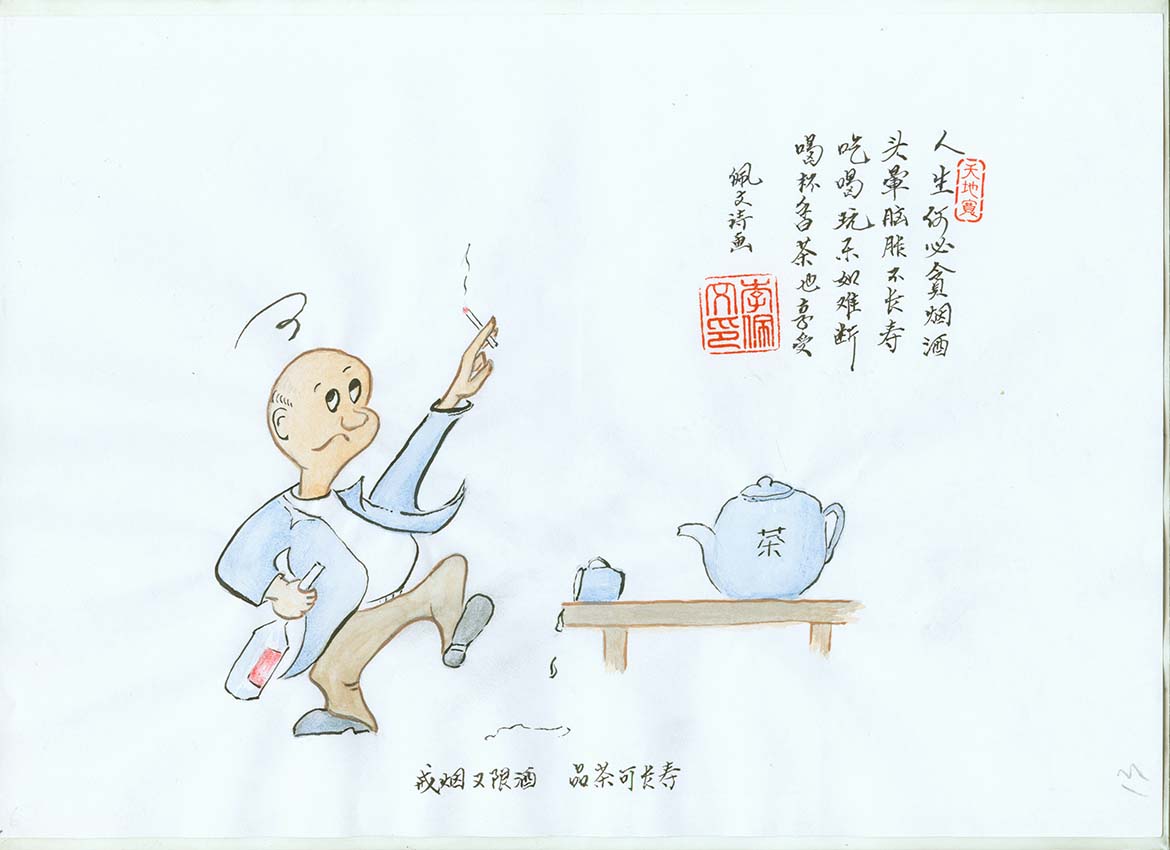 天地寬
人生何必貪烟酒
头晕脑胀不长寿
吃喝玩乐如难断
喝杯香茶也享受
佩文诗画
李佩文印
茶
戒烟又限酒 品茶可长寿
13